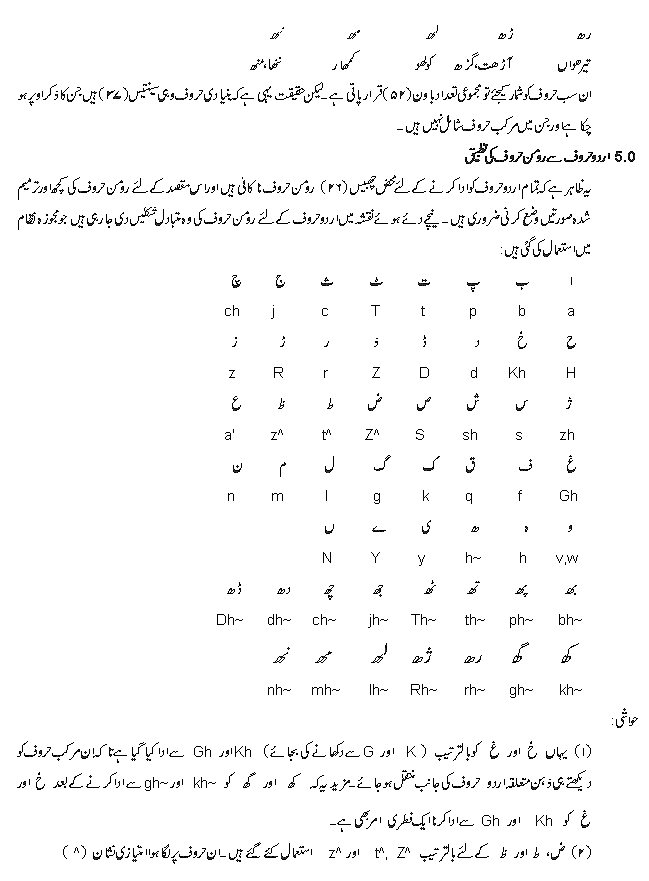 رھ ڑھ لھ مھ نھ
تیرھواں آڑھت،گڑھ کولھو کمھار ننھا،منھ
ان سب حروف کو شمار کیجئے تو مجموعی تعداد باون (۵۲) قرار پاتی ہے۔ لیکن حقیقت یہی ہے کہ بنیادی حروف وہی سینتیس (۳۷) ہیں جن کا ذکر اوپر ہو
چکا ہے اور جن میں مرکب حروف شامل نہیں ہیں۔
5.0 اردو حروف سے رومن حروف کی تطبیق
یہ ظاہر ہے کہ تمام اردو حروف کو ادا کرنے کے لئے محض چھبیس (۲۶) رومن حروف ناکافی ہیں اور اس مقصد کے لئے رومن حروف کی کچھ اور ترمیم
شدہ صورتیں وضع کرنی ضروری ہیں۔ نیچے دئے ہوئے نقشہ میں اردو حروف کے لئے رومن حروف کی وہ متبادل شکلیں دی جا رہی ہیں جو مجوزہ نظام
میں استعمال کی گئی ہیں:
ا ب پ ت ٹ ث ج چ
a b p t T c j ch
ح خ د ڈ ذ ر ڑ ز
H Kh d D Z r R z
ژ س ش ص ض ط ظ ع
zh s sh S Z^ t^ z^ a'
غ ف ق ک گ ل م ن
Gh f q k g l m n
و ہ ھ ی ے ں
v,w h h~ y Y N
بھ پھ تھ ٹھ جھ چھ دھ ڈھ
bh~ ph~ th~ Th~ jh~ ch~ dh~ Dh~
کھ گھ رھ ڑھ لھ مھ نھ
kh~ gh~ rh~ Rh~ lh~ mh~ nh~
حواشی:
(۱) یہاں خ اور غ کو بالترتیب (K اور G سے دکھانے کی بجائے) Kh اور Gh سے ادا کیا گیا ہے تاکہ ان مرکب حروف کو
دیکھتے ہی ذہن متعلقہ اردو حروف کی جانب منتقل ہو جائے۔ مزید یہ کہ کھ اور گھ کو kh~ اور gh~ سے ادا کرنے کے بعد خ اور
غ کو Kh اور Gh سے ادا کرنا ایک فطری امر بھی ہے۔
(۲) ض، ط اور ظ کے لئے بالترتیب Z^ ,t^ اور z^ استعمال کئے گئے ہیں۔ ان حروف پر لگا ہوا امتیازی نشان (^)